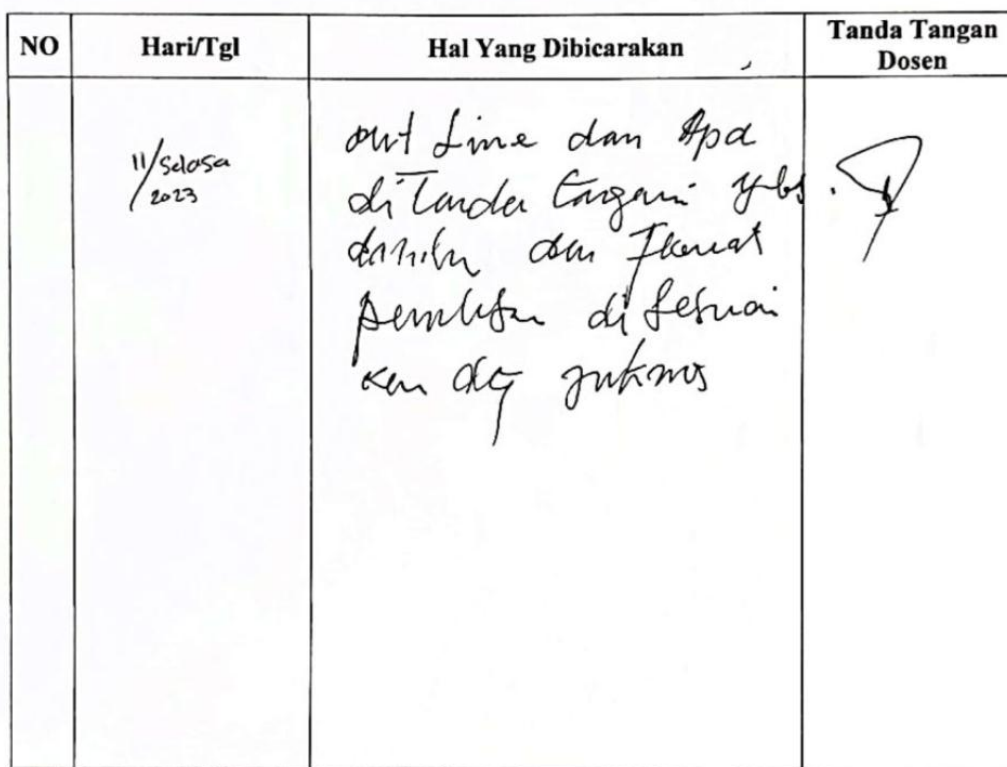 NO Hari/Tgl Hal Yang Dibicarakan Tanda Tangan Dosen
11/Selasa
/2023
out Line dan Apd
di Tanda tangani
dan Format
di Sesuai
kan dg juknis